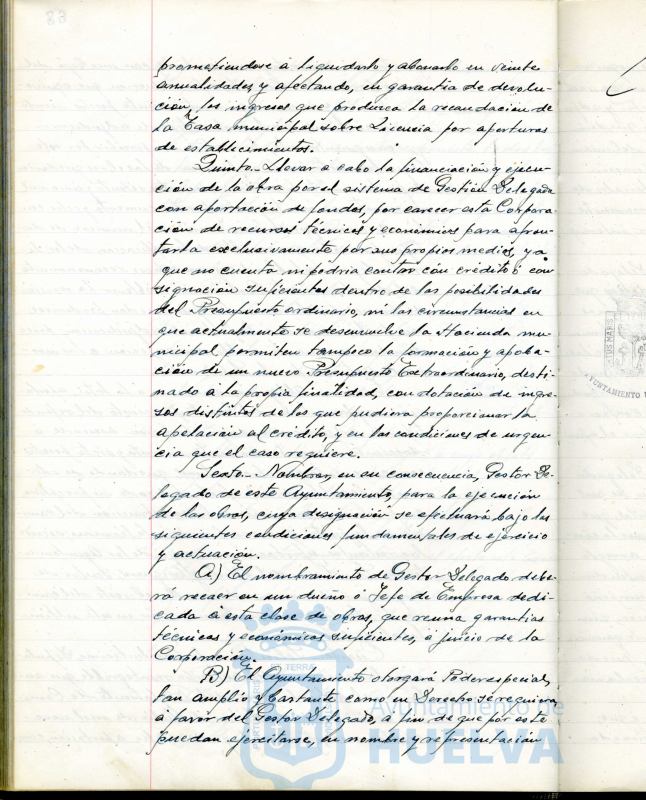 83
prometiéndose á liquidarlo y abonarlo en veinte
anualidades y afectando, en garantía de devolu-
ción, los ingresos que produzca la recaudación de
la Tasa municipal sobre Licencia por aperturas
de establecimientos.
Quinto.- Llevar á cabo la financiación y ejecu-
ción de la obra por el sistema de Gestión Delegada
con aportación de fondos, por carecer esta Corpora-
ción de recursos técnicos y económicos para afron-
tarla exclusivamente por sus propios medios, ya
que no cuenta ni podría contar con crédito ó con-
signación suficientes dentro de las posibilidades
del Presupuesto ordinario, ni las circunstancias en
que actualmente se desenvuelve la Hacienda mu-
nicipal permiten tampoco la formación y aproba-
ción de un nuevo Presupuesto Extraordinario, desti-
nado á la propia finalidad, con dotación de ingre-
sos distintos de los que pudiera proporcionar la
apelación al crédito, y en las condiciones de urgen-
cia que el caso requiere.
Sexto.- Nombrar, en su consecuencia, Gestor De-
legado de este Ayuntamiento, para la ejecución
de las obras, cuya designación se efectuará bajo las
siguientes condiciones fundamentales de ejercicio
y actuación.
A) El nombramiento de Gestor Delegado debe-
rá recaer en un dueño ó Jefe de Empresa dedi-
cada á esta clase de obras, que reuna garantías
técnicas y económicas suficientes, á juicio de la
Corporación.
B) El Ayuntamiento otorgará Poder especial,
tan amplio y bastante como en Derecho se requiera
á favor del Gestor Delegado, á fin de que por este
puedan ejercitarse, en nombre y representación
Ayuntamiento de
HUELVA